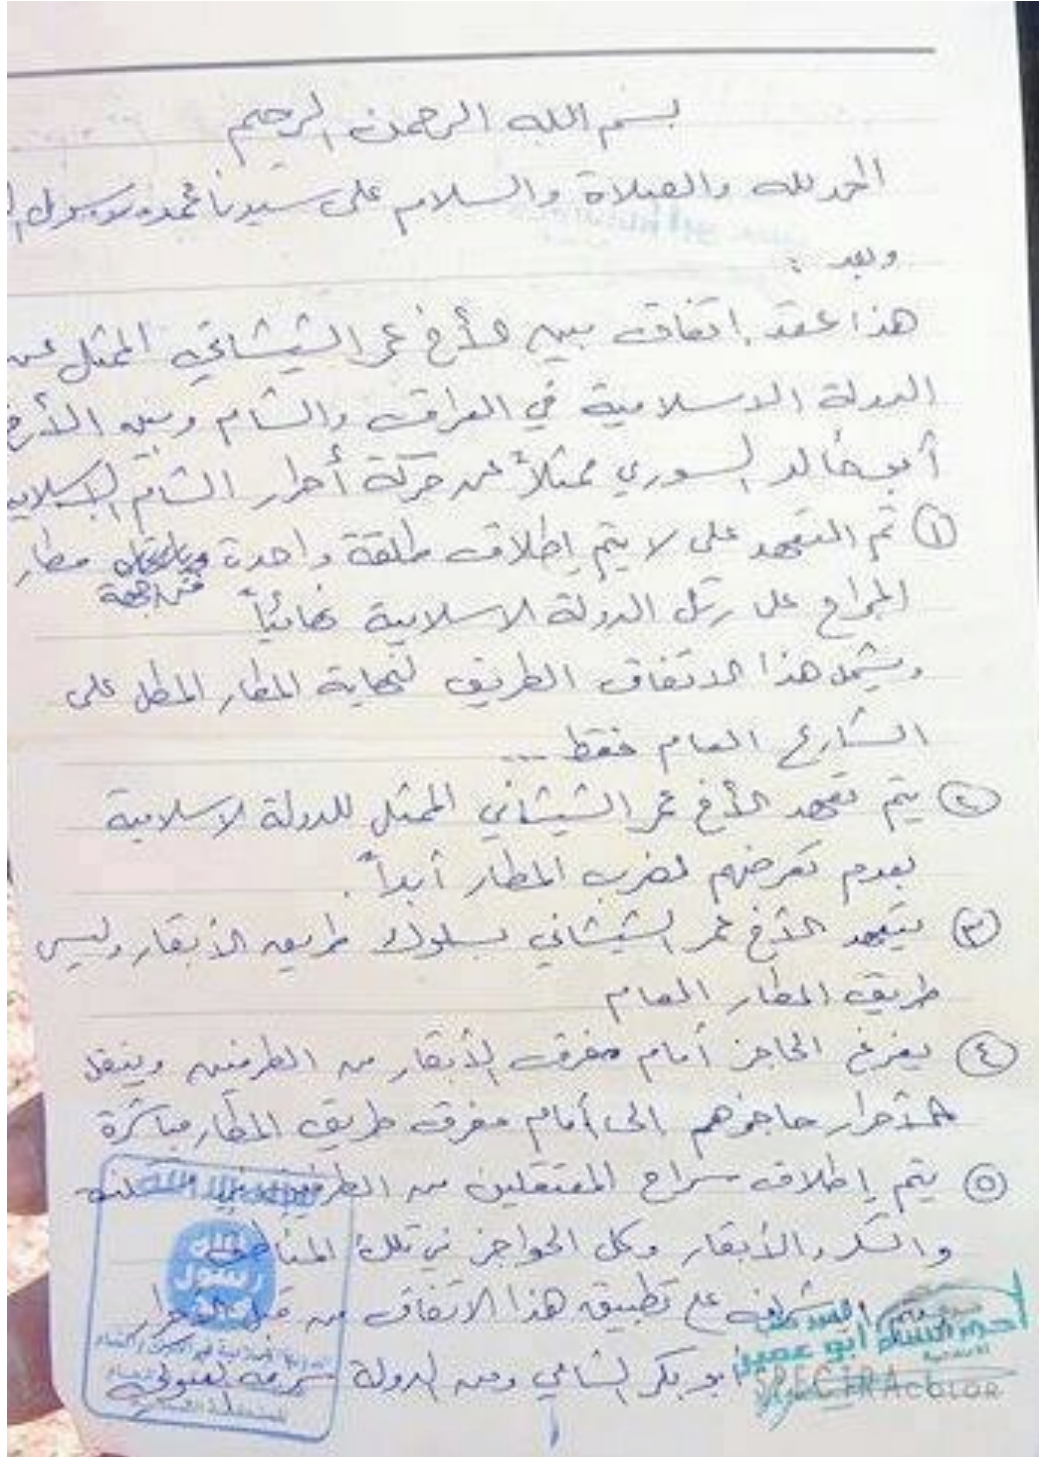 بسم الله الرحمن الرحيم
الحمد لله والصلاة والسلام على سيدنا محمد رسول
وبعد :
هذا عقد اتفاق بين الأخ عمر الشيشاني الممثل عن
الدولة الاسلامية في العراق والشام وبين الأخ
أبو خالد السوري ممثلاً عن حركة أحرار الشام الاسلامية
① تم التعهد على لا يتم إطلاق طلقة واحدة مطار
من جهة
الجراح على رتل الدولة الاسلامية نهائياً
ويشمل هذا الاتفاق الطريق لنهاية المطار المطل على
الشارع العام فقط ...
② يتم تعهد الأخ عمر الشيشاني الممثل للدولة الاسلامية
بعدم تعرضهم لضرب المطار أبداً .
③ يتعهد الأخ عمر الشيشاني بسلوك طريق الأبقار وليس
طريق المطار العام
④ يفرغ الحاجز أمام مفرق الأبقار من الطرفين وينقل
الأحرار حاجزهم الى أمام مفرق طريق المطار مباشرة
⑤ يتم إطلاق سراح المعتقلين من الطرفين في مسكنة
والسكر والأبقار وكل الحواجز في تلك المناطق
على تطبيق هذا الاتفاق من قبل الأحرار
أبو بكر الشامي ومن الدولة
لا اله الا الله
الله
رسول
محمد
أحرار الشام
SPECTRACOLOR